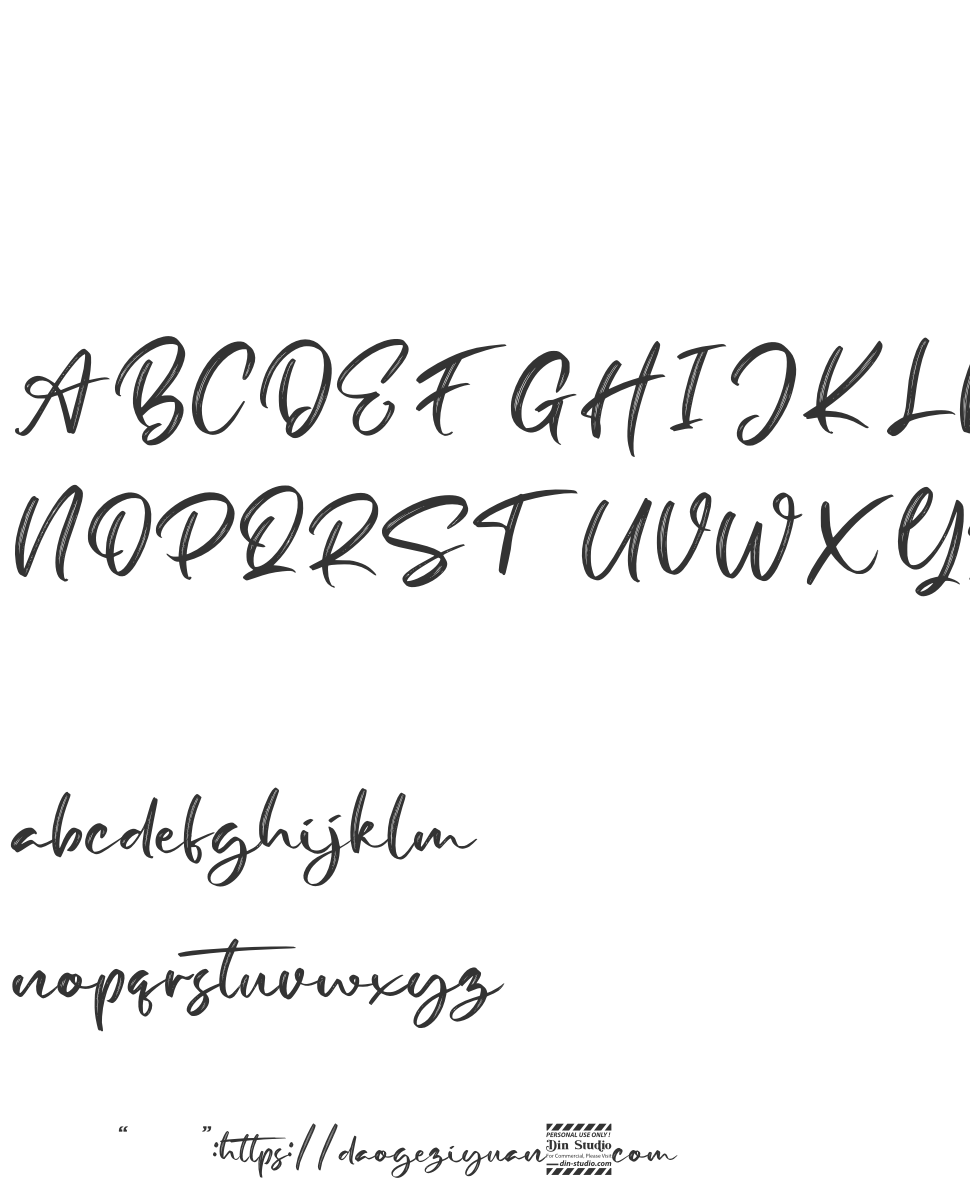 ABCDEFGHIJKL
NOPQRSTUVWXY
abcdefghijklm
nopqrstuvwxyz
“ ”:https://daogeziyuan
PERSONAL USE ONLY!
Din Studio
For Commercial, Please Visit
din-studio.com
com